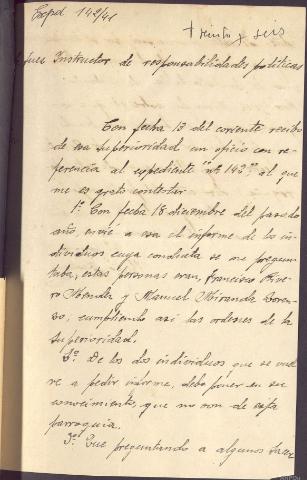 Exped 142/41
treinta y seis
Juez Instructor de responsabilidades políticas
Con fecha 13 del corriente recibo
de esa superioridad un oficio con re-
ferencia al expediente "nº 142" al que
me es grato contestar
1º Con fecha 18 diciembre del pasado
año, envié a esa el informe de los in-
dividuos cuya conducta se me pregun-
taba, estas personas eran, Francisco Rive-
ro Mendez y Manuel Miranda Loren-
zo, cumpliendo así las ordenes de la
superioridad.
2º De los dos individuos que se vuel-
ve a pedir informe, debo poner en su
conocimiento, que no son de esta
parroquia.
3º Que preguntando a algunos